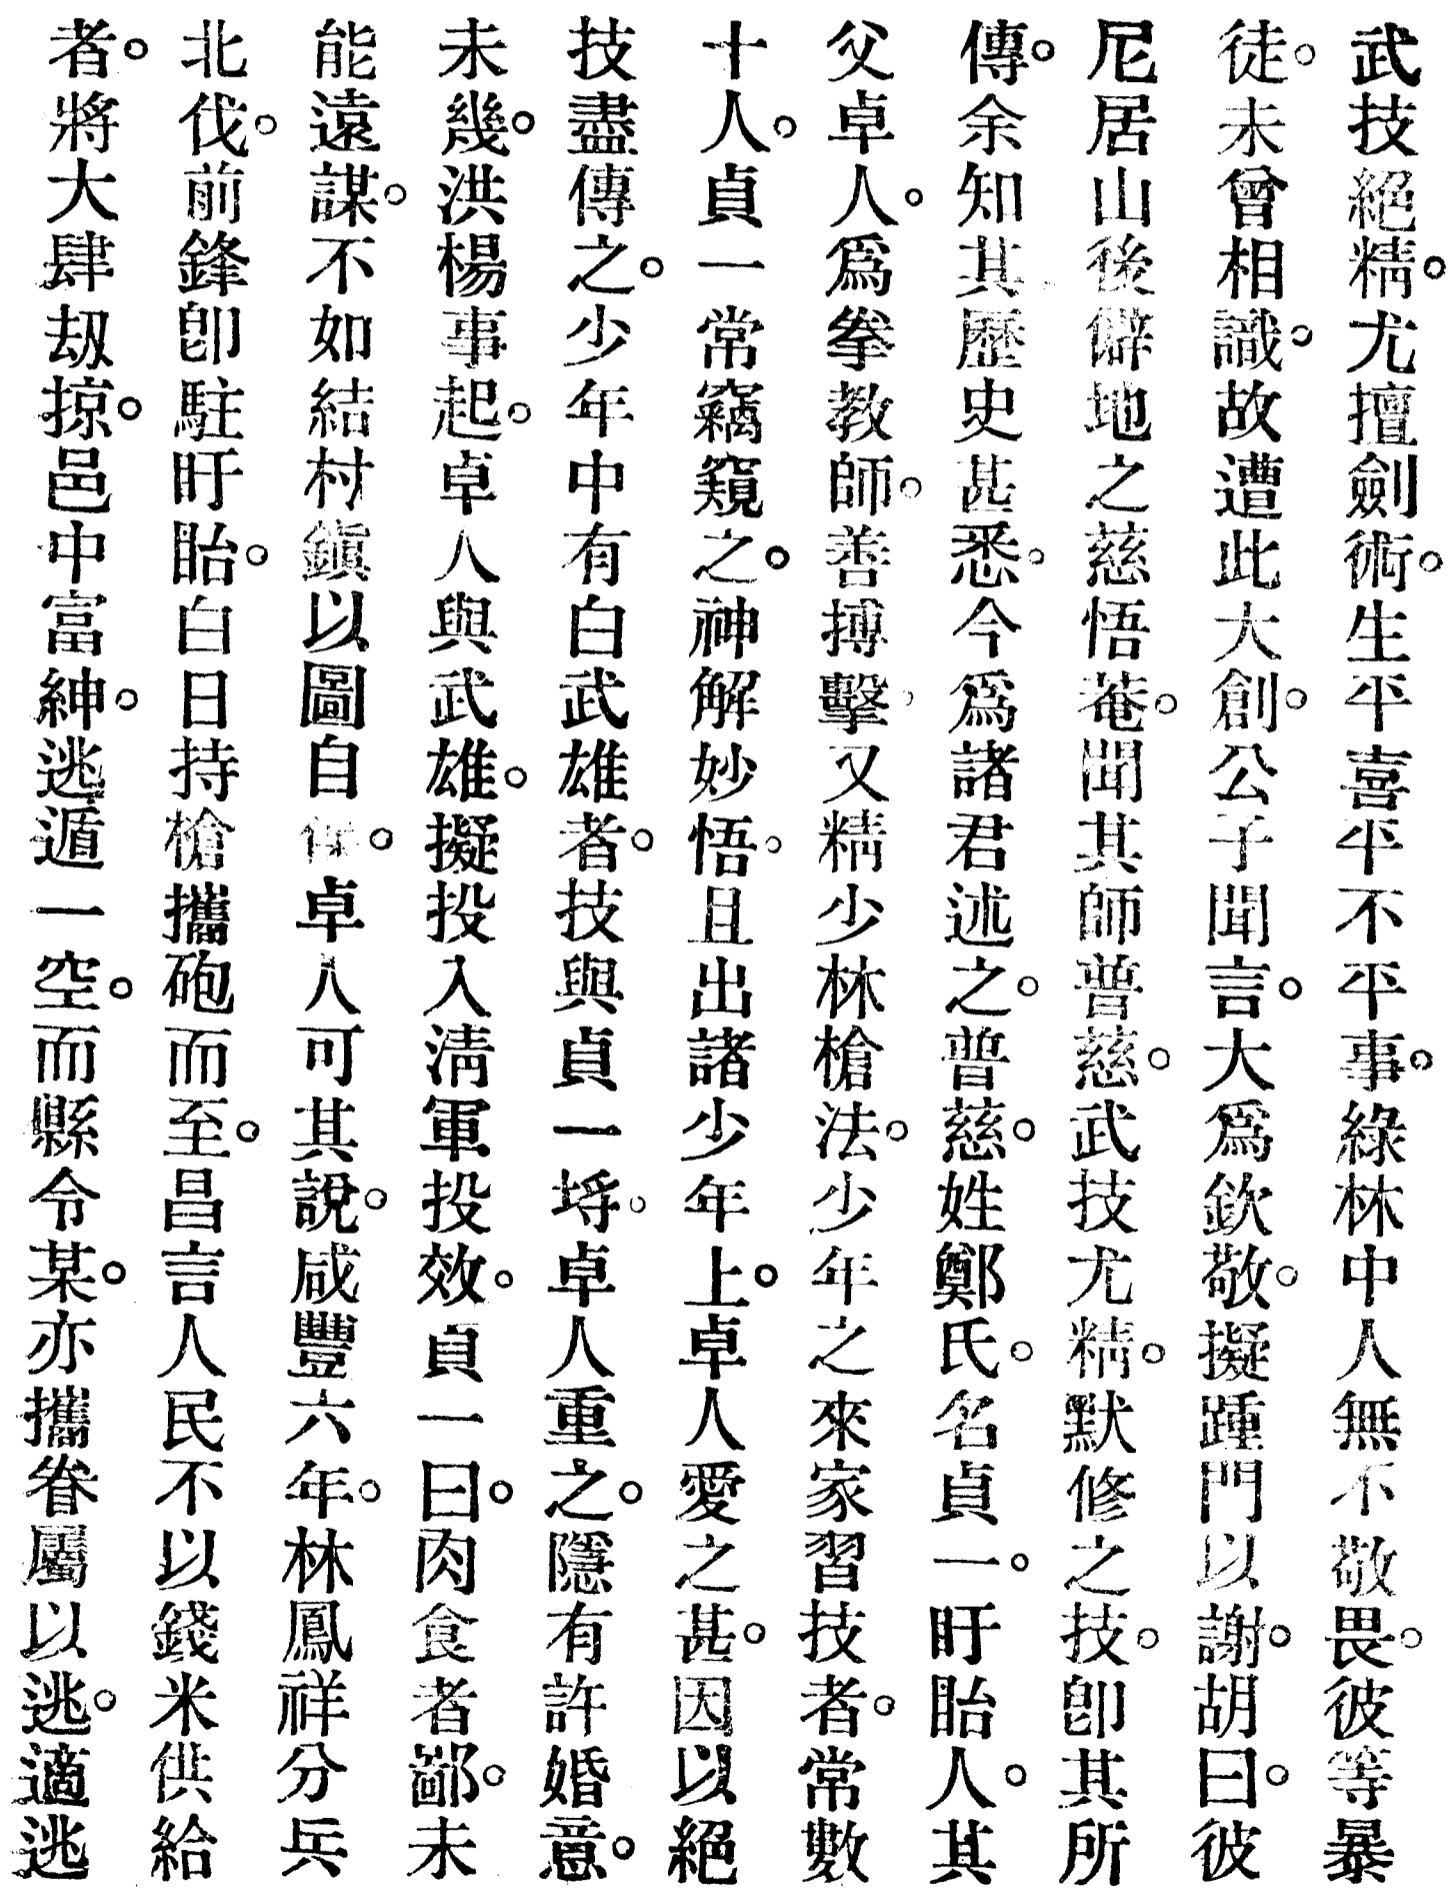 武技絕精。尤擅劍術。生平喜平不平事。綠林中人無不敬畏。彼等暴
徒。未曾相識。故遭此大創。公子聞言。大爲欽敬。擬踵門以謝。胡曰。彼
尼居山後僻地之慈悟菴。聞其師普慈。武技尤精。默修之技。卽其所
傳。余知其歷史甚悉。今爲諸君述之。普慈。姓鄭氏。名貞一。盱眙人。其
父卓人。爲拳教師。善搏擊。又精少林槍法。少年之來家習技者。常數
十人。貞一常竊窺之。神解妙悟。且出諸少年上。卓人愛之甚。因以絕
技盡傳之。少年中有白武雄者。技與貞一埒。卓人重之。隱有許婚意。
未幾。洪楊事起。卓人與武雄。擬投入淸軍投效。貞一曰。肉食者鄙。未
能遠謀。不如結村鎭以圖自保。卓人可其說。咸豐六年。林鳳祥分兵
北伐。前鋒卽駐盱眙。白日持槍攜砲而至。昌言人民不以錢米供給
者。將大肆刼掠。邑中富紳。逃遁一空。而縣令某。亦攜眷屬以逃。適逃